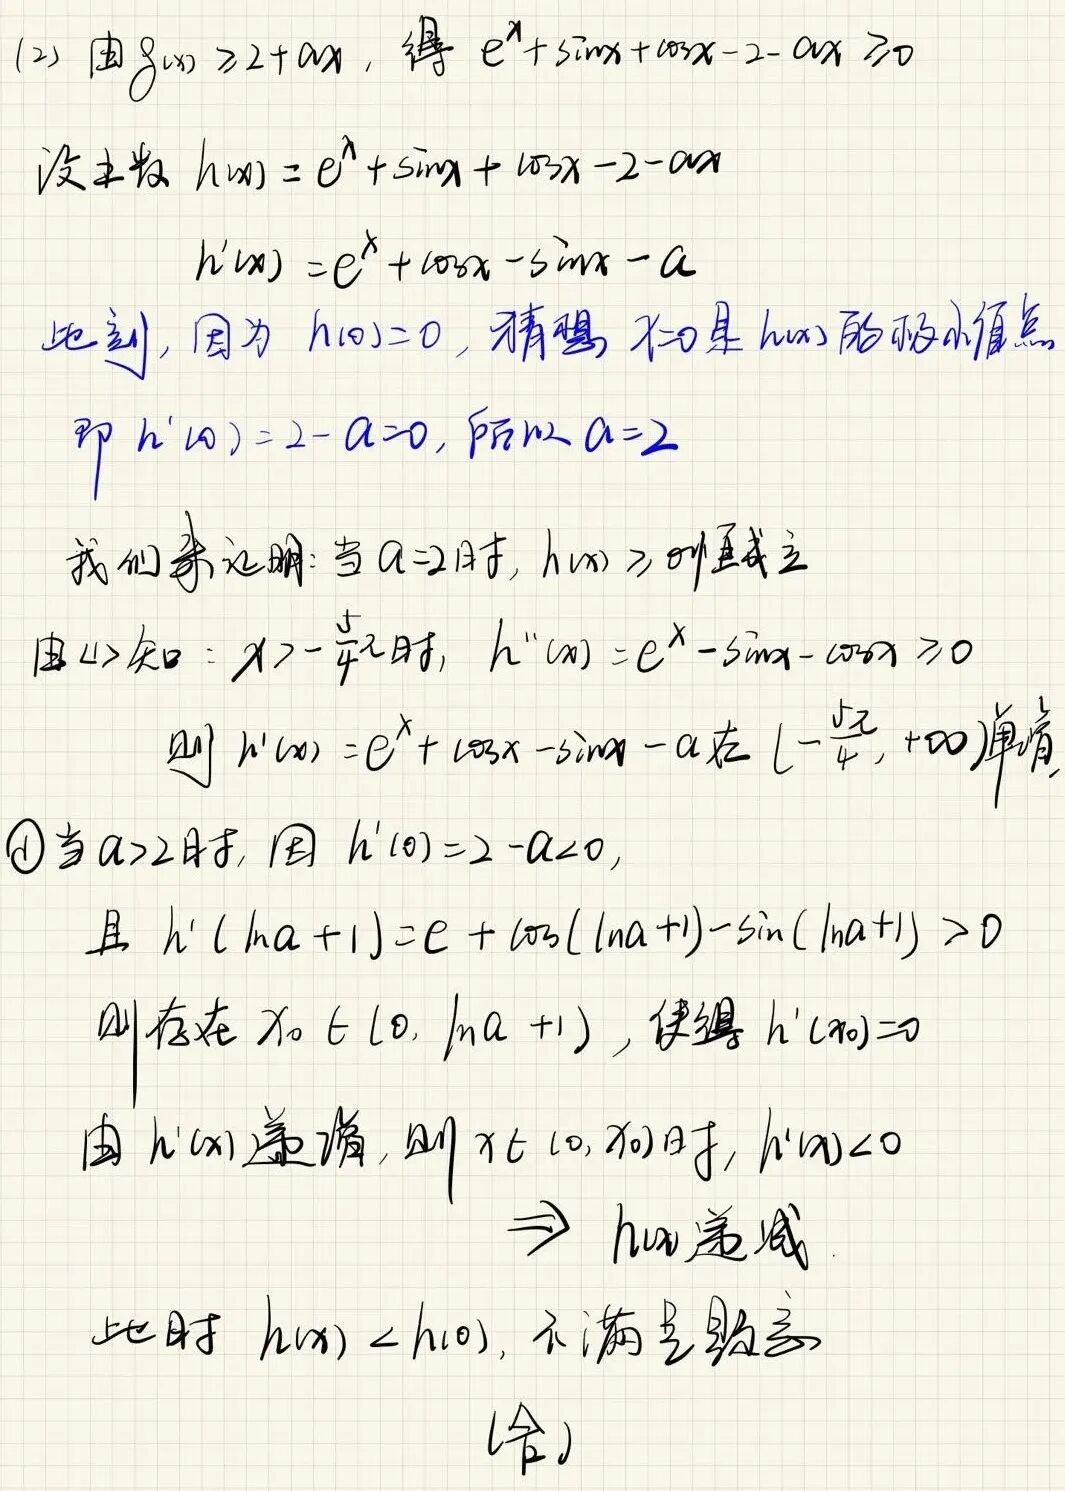 (2) 由g(x)≥2+ax, 得 e^x+sinx+cosx-2-ax≥0
设主数 h(x)=e^x+sinx+cosx-2-ax
h'(x)=e^x+cosx-sinx-a
此刻, 因为 h(0)=0, 猜想 x=0是h(x)的极小值点
即 h'(0)=2-a=0, 所以 a=2
我们来证明: 当a=2时, h(x)≥0恒成立
由<1>知: x>-5/4π时, h''(x)=e^x-sinx-cosx≥0
则 h'(x)=e^x+cosx-sinx-a在[-5π/4, +∞)单增
①当a>2时, 因 h'(0)=2-a<0,
且 h'(lna+1)=e+cos(lna+1)-sin(lna+1)>0
则存在 x₀∈(0, lna+1), 使得 h'(x₀)=0
由h'(x)递增, 则x∈(0, x₀)时, h'(x)<0
⇒ h(x)递减.
此时 h(x)<h(0), 不满足题意
(舍)